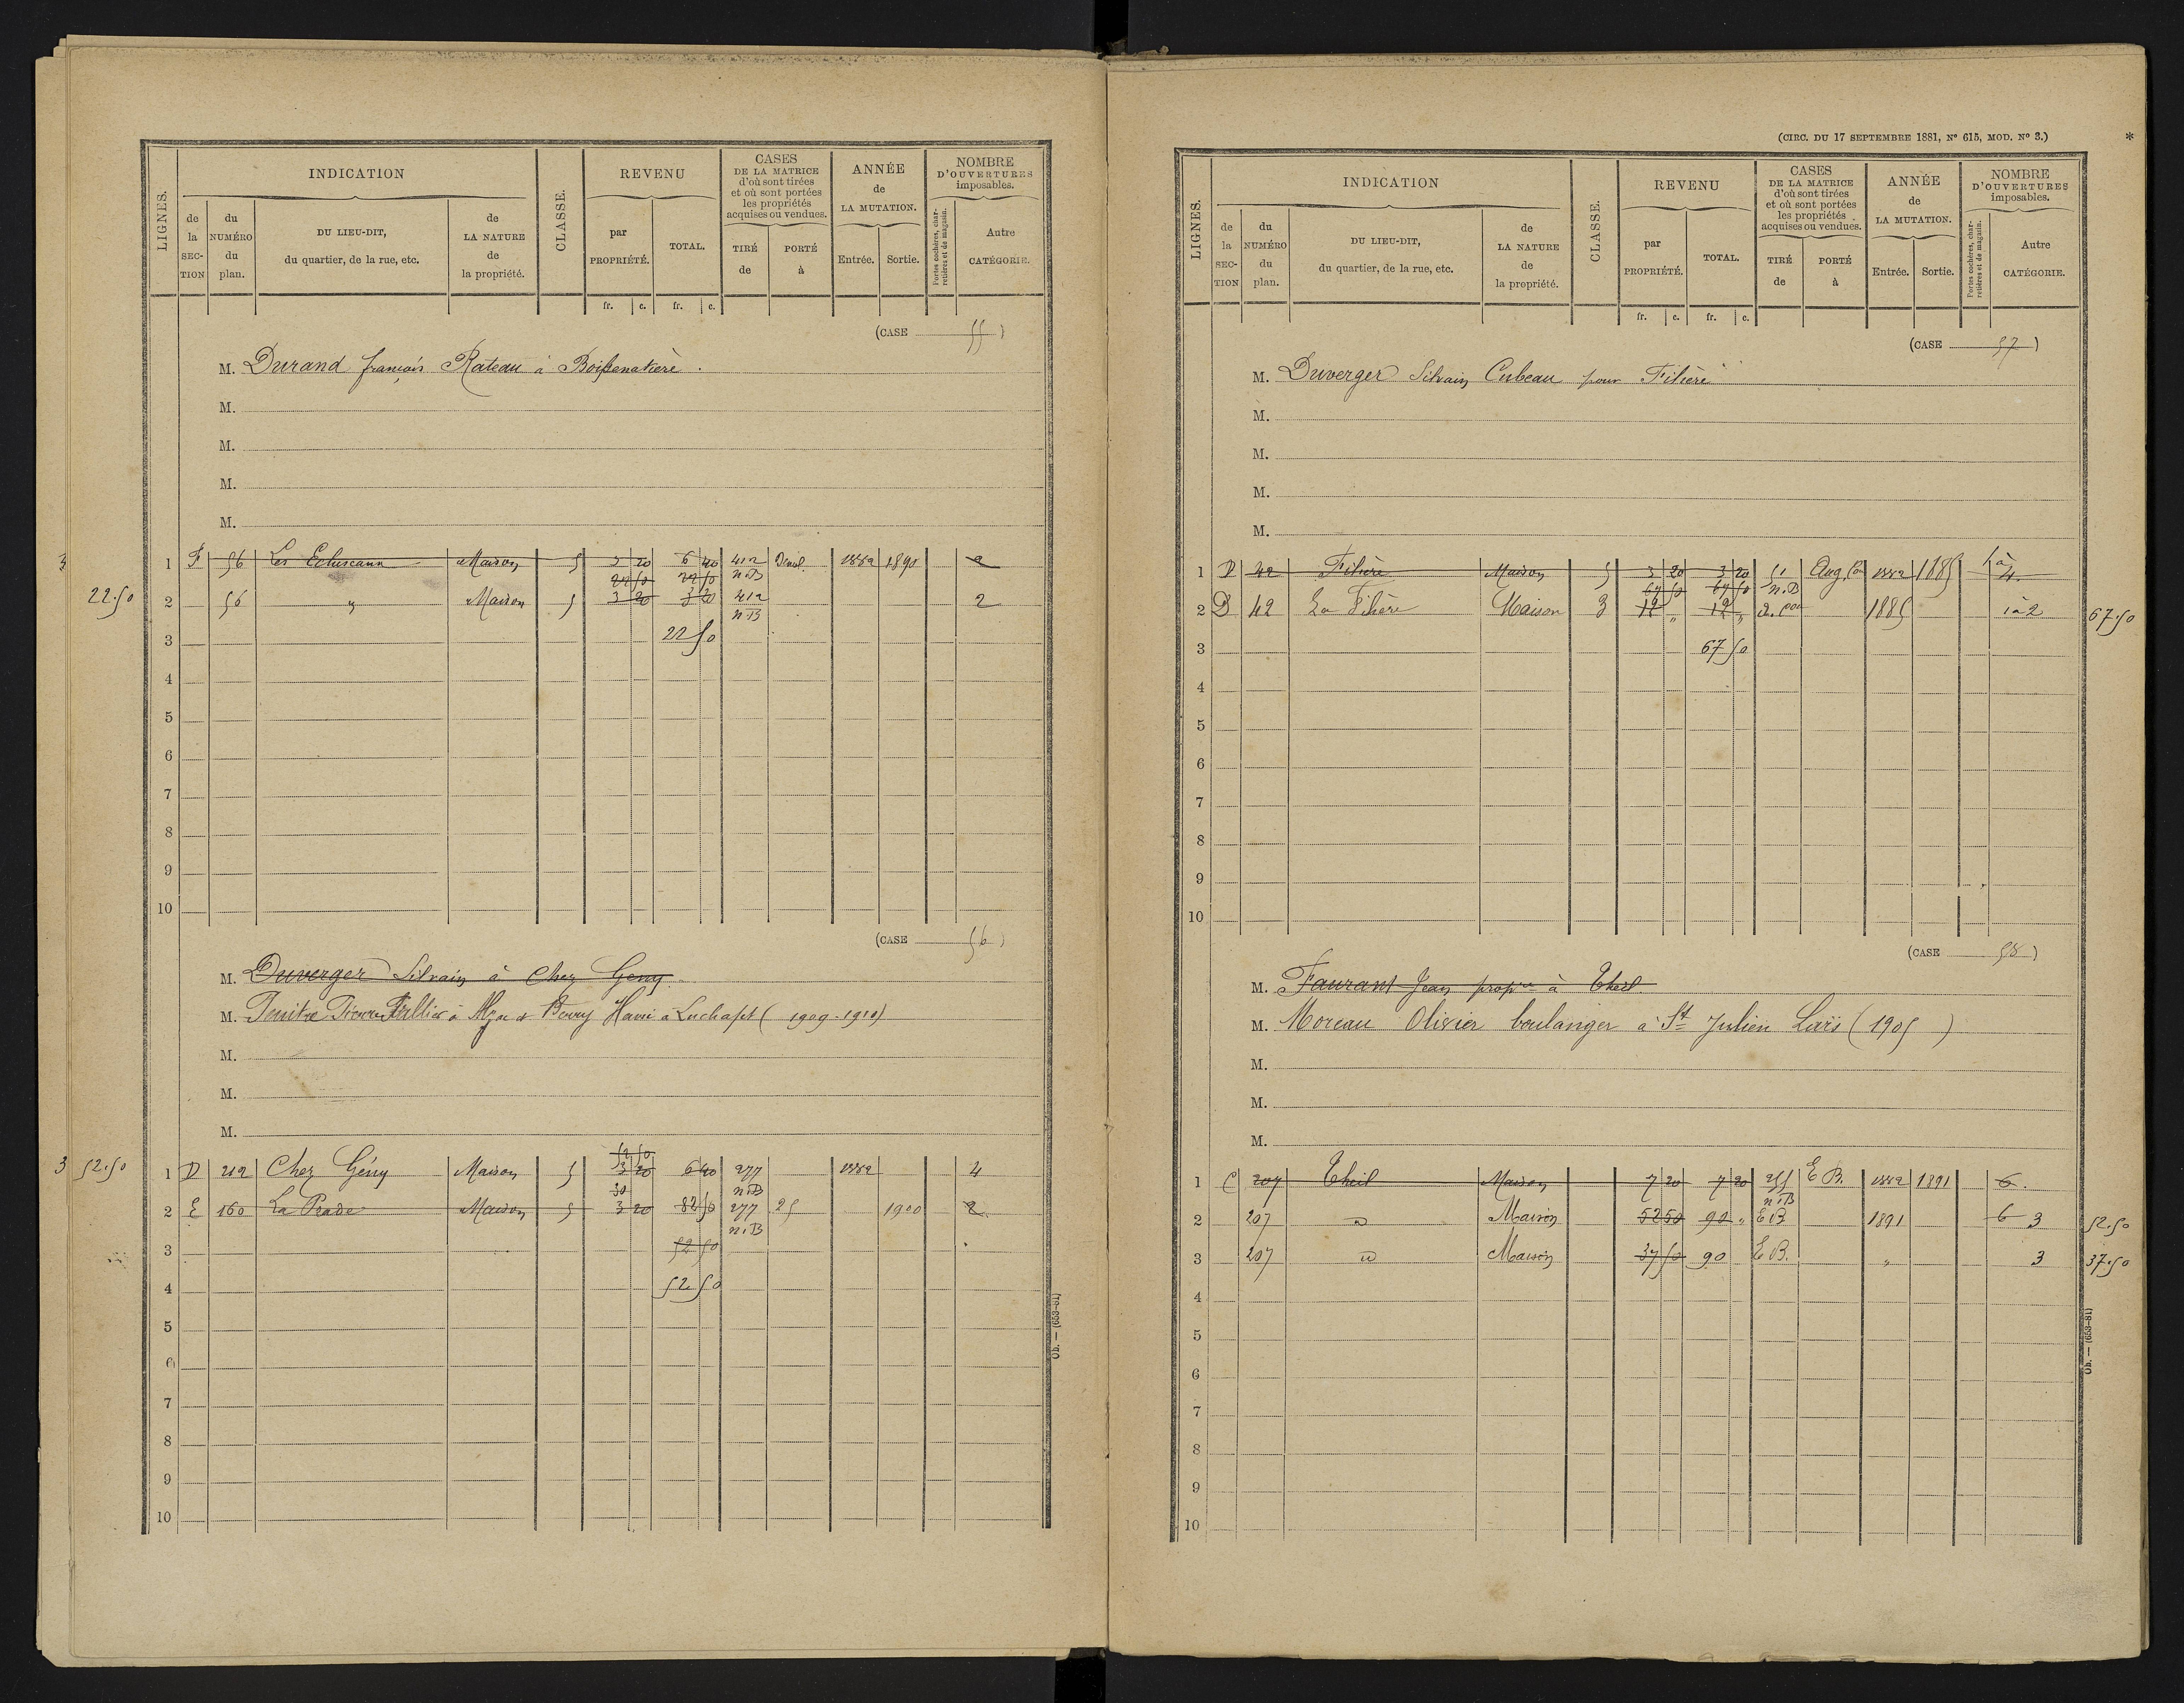 LIGNES.
INDICATION
de la SECTION
du NUMÉRO du plan.
DU LIEU-DIT, du quartier, de la rue, etc.
de LA NATURE de la propriété.
CLASSE.
REVENU
par PROPRIÉTÉ.
TOTAL.
CASES DE LA MATRICE d'où sont tirées et où sont portées les propriétés acquises ou vendues.
TIRÉ de
PORTÉ à
ANNÉE de LA MUTATION.
Entrée.
Sortie.
NOMBRE D'OUVERTURES imposables.
Portes cochères, charretières et de magasin.
Autre CATÉGORIE.
fr. c. fr. c.
(CASE 55)
M. Durand françois Rateau à
M.
M.
M.
M.
3
1 F 56 Maison 5 3 20 6 40 412 1882 1890 2
22 50 22 50 n.B
22.50 2 56 " Maison 5 3 20 3 20 412 2
n.B
3 22 50
4
5
6
7
8
9
10
(CASE 56)
M. Duverger Silvain à Chez Geny
M. à Luchapt (1909-1910)
M.
M.
M.
52 50
3 52.50 1 D 212 Chez Gény Maison 5 3 20 6 40 277 1882 4
30 n.B
2 E 160 La Prade Maison 5 3 20 82 50 277 25 1900 2
n.B
3 52 50
4 52 50
5
6
7
8
9
10
Ob. — (653-81)
(CIRC. DU 17 SEPTEMBRE 1881, Nº 615, MOD. Nº 3.) *
LIGNES.
INDICATION
de la SECTION
du NUMÉRO du plan.
DU LIEU-DIT, du quartier, de la rue, etc.
de LA NATURE de la propriété.
CLASSE.
REVENU
par PROPRIÉTÉ.
TOTAL.
CASES DE LA MATRICE d'où sont tirées et où sont portées les propriétés acquises ou vendues.
TIRÉ de
PORTÉ à
ANNÉE de LA MUTATION.
Entrée.
Sortie.
NOMBRE D'OUVERTURES imposables.
Portes cochères, charretières et de magasin.
Autre CATÉGORIE.
fr. c. fr. c.
(CASE 57)
M. Duverger Silvain Cubeau pour Filière
M.
M.
M.
M.
1 D 42 Filière Maison 5 3 20 3 20 51 1882 1885
67 50 67 50 n.B
2 D 42 La Filière Maison 3 12 " 12 " 1885 1 à 2 67.50
3 67 50
4
5
6
7
8
9
10
(CASE 58)
M. Faurant Jean propre à Theil
M. Moreau Olivier boulanger à St Julien Lars (1905)
M.
M.
M.
1 C 207 Theil Maison 7 20 7 20 255 E B. 1882 1891 6.
n.B
2 207 d Maison 52 50 90 " E B 1891 6 3 52.50
3 207 d Maison 37 50 90 E B. " 3 37.50
4
5
6
7
8
9
10
Ob. — (653-81)